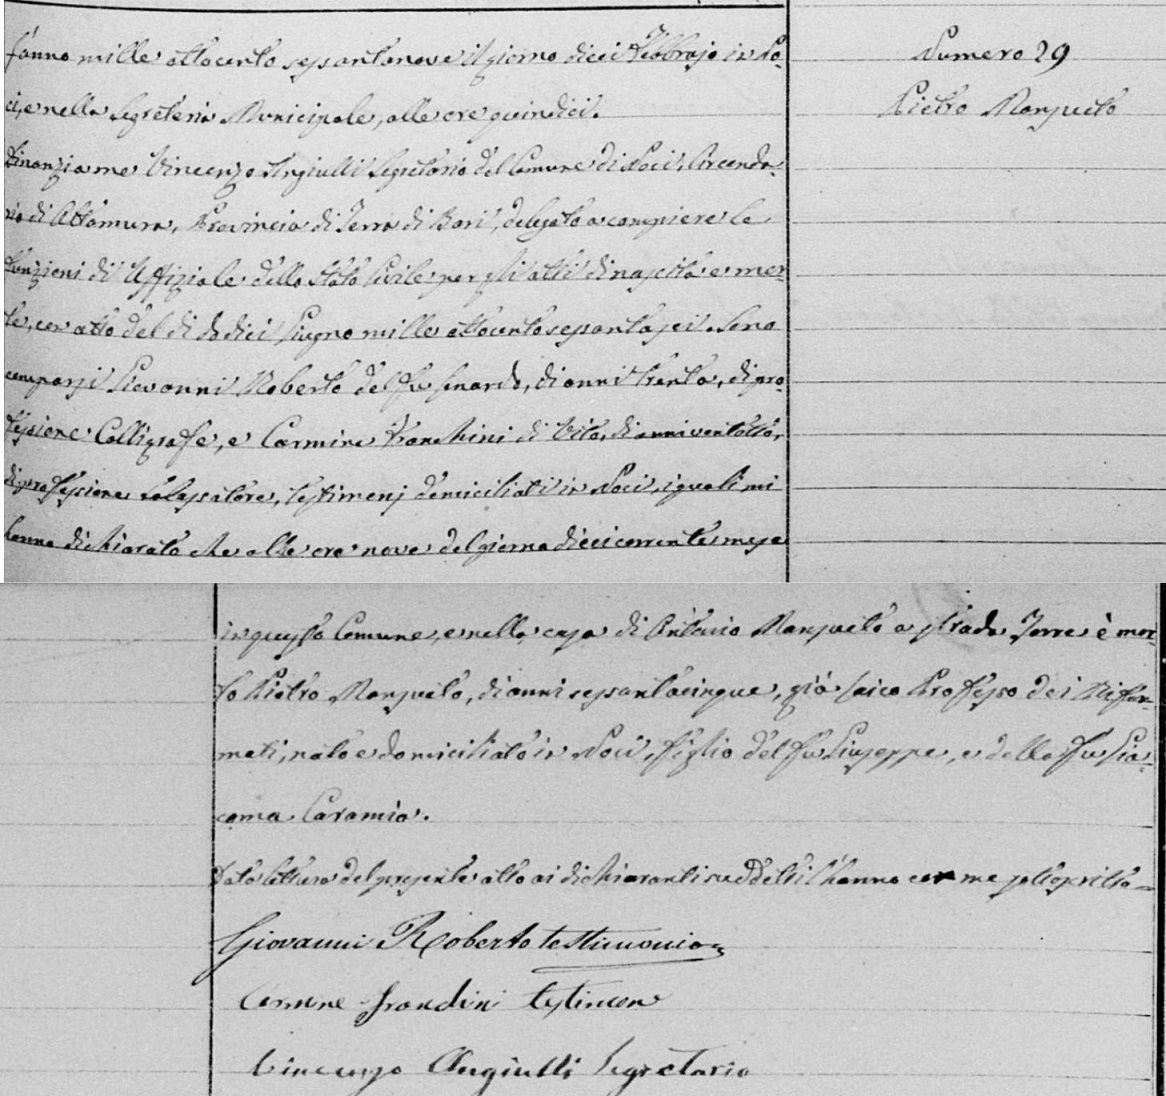 L'anno mille ottocento sessantanove il giorno dieci Febbrajo in No-
ci, e nella Segreteria Municipale, alle ore quindici.
Dinanzi a me Vincenzo Angiulli Segretario del Comune di Noci, Circonda-
rio di Altamura, Provincia di Terra di Bari, delegato a compiere le
funzioni di Uffiziale dello Stato Civile per gli atti di nascita e mor-
te, con atto del di dodici Giugno mille ottocentosessantasei. Sono
comparsi Giovanni Roberto del fu Leonardo, di anni trenta, di pro-
fessione Calligrafo, e Carmine Franchini di Vito, di anni ventotto,
di professione Salassatore, testimonj domiciliati in Noci, i quali mi
hanno dichiarato che alle ore nove del giorno dieci corrente mese
Numero 29
Pietro Mansueto
in questo Comune, e nella casa di Antonio Mansueto a strada Torre è mor-
to Pietro Mansueto, di anni sessantacinque, già laico Professo dei Rifor-
mati, nato e domiciliato in Noci, figlio del fu Giuseppe, e della fu Gia-
coma Caramia.
Data lettura del presente atto ai dichiaranti suddetti l'hanno con me sottoscritto
Giovanni Roberto testimonio
Carmine testimon
Vincenzo Angiulli Segretario